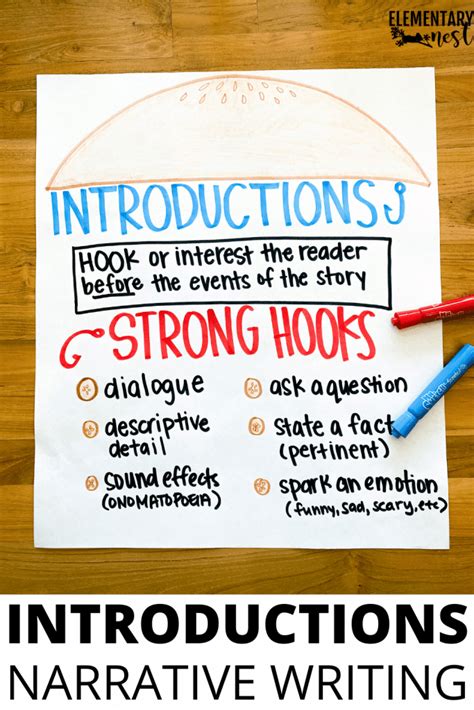 ELEMENTARY
nest
INTRODUCTIONS
HOOK or interest the reader
before the events of the story
STRONG HOOKS
dialogue
descriptive
detail
sound effects
(ONOMATOPOEIA)
ask a question
state a fact
(pertinent)
spark an emotion
(funny, sad, scary, etc)
INTRODUCTIONS
NARRATIVE WRITING